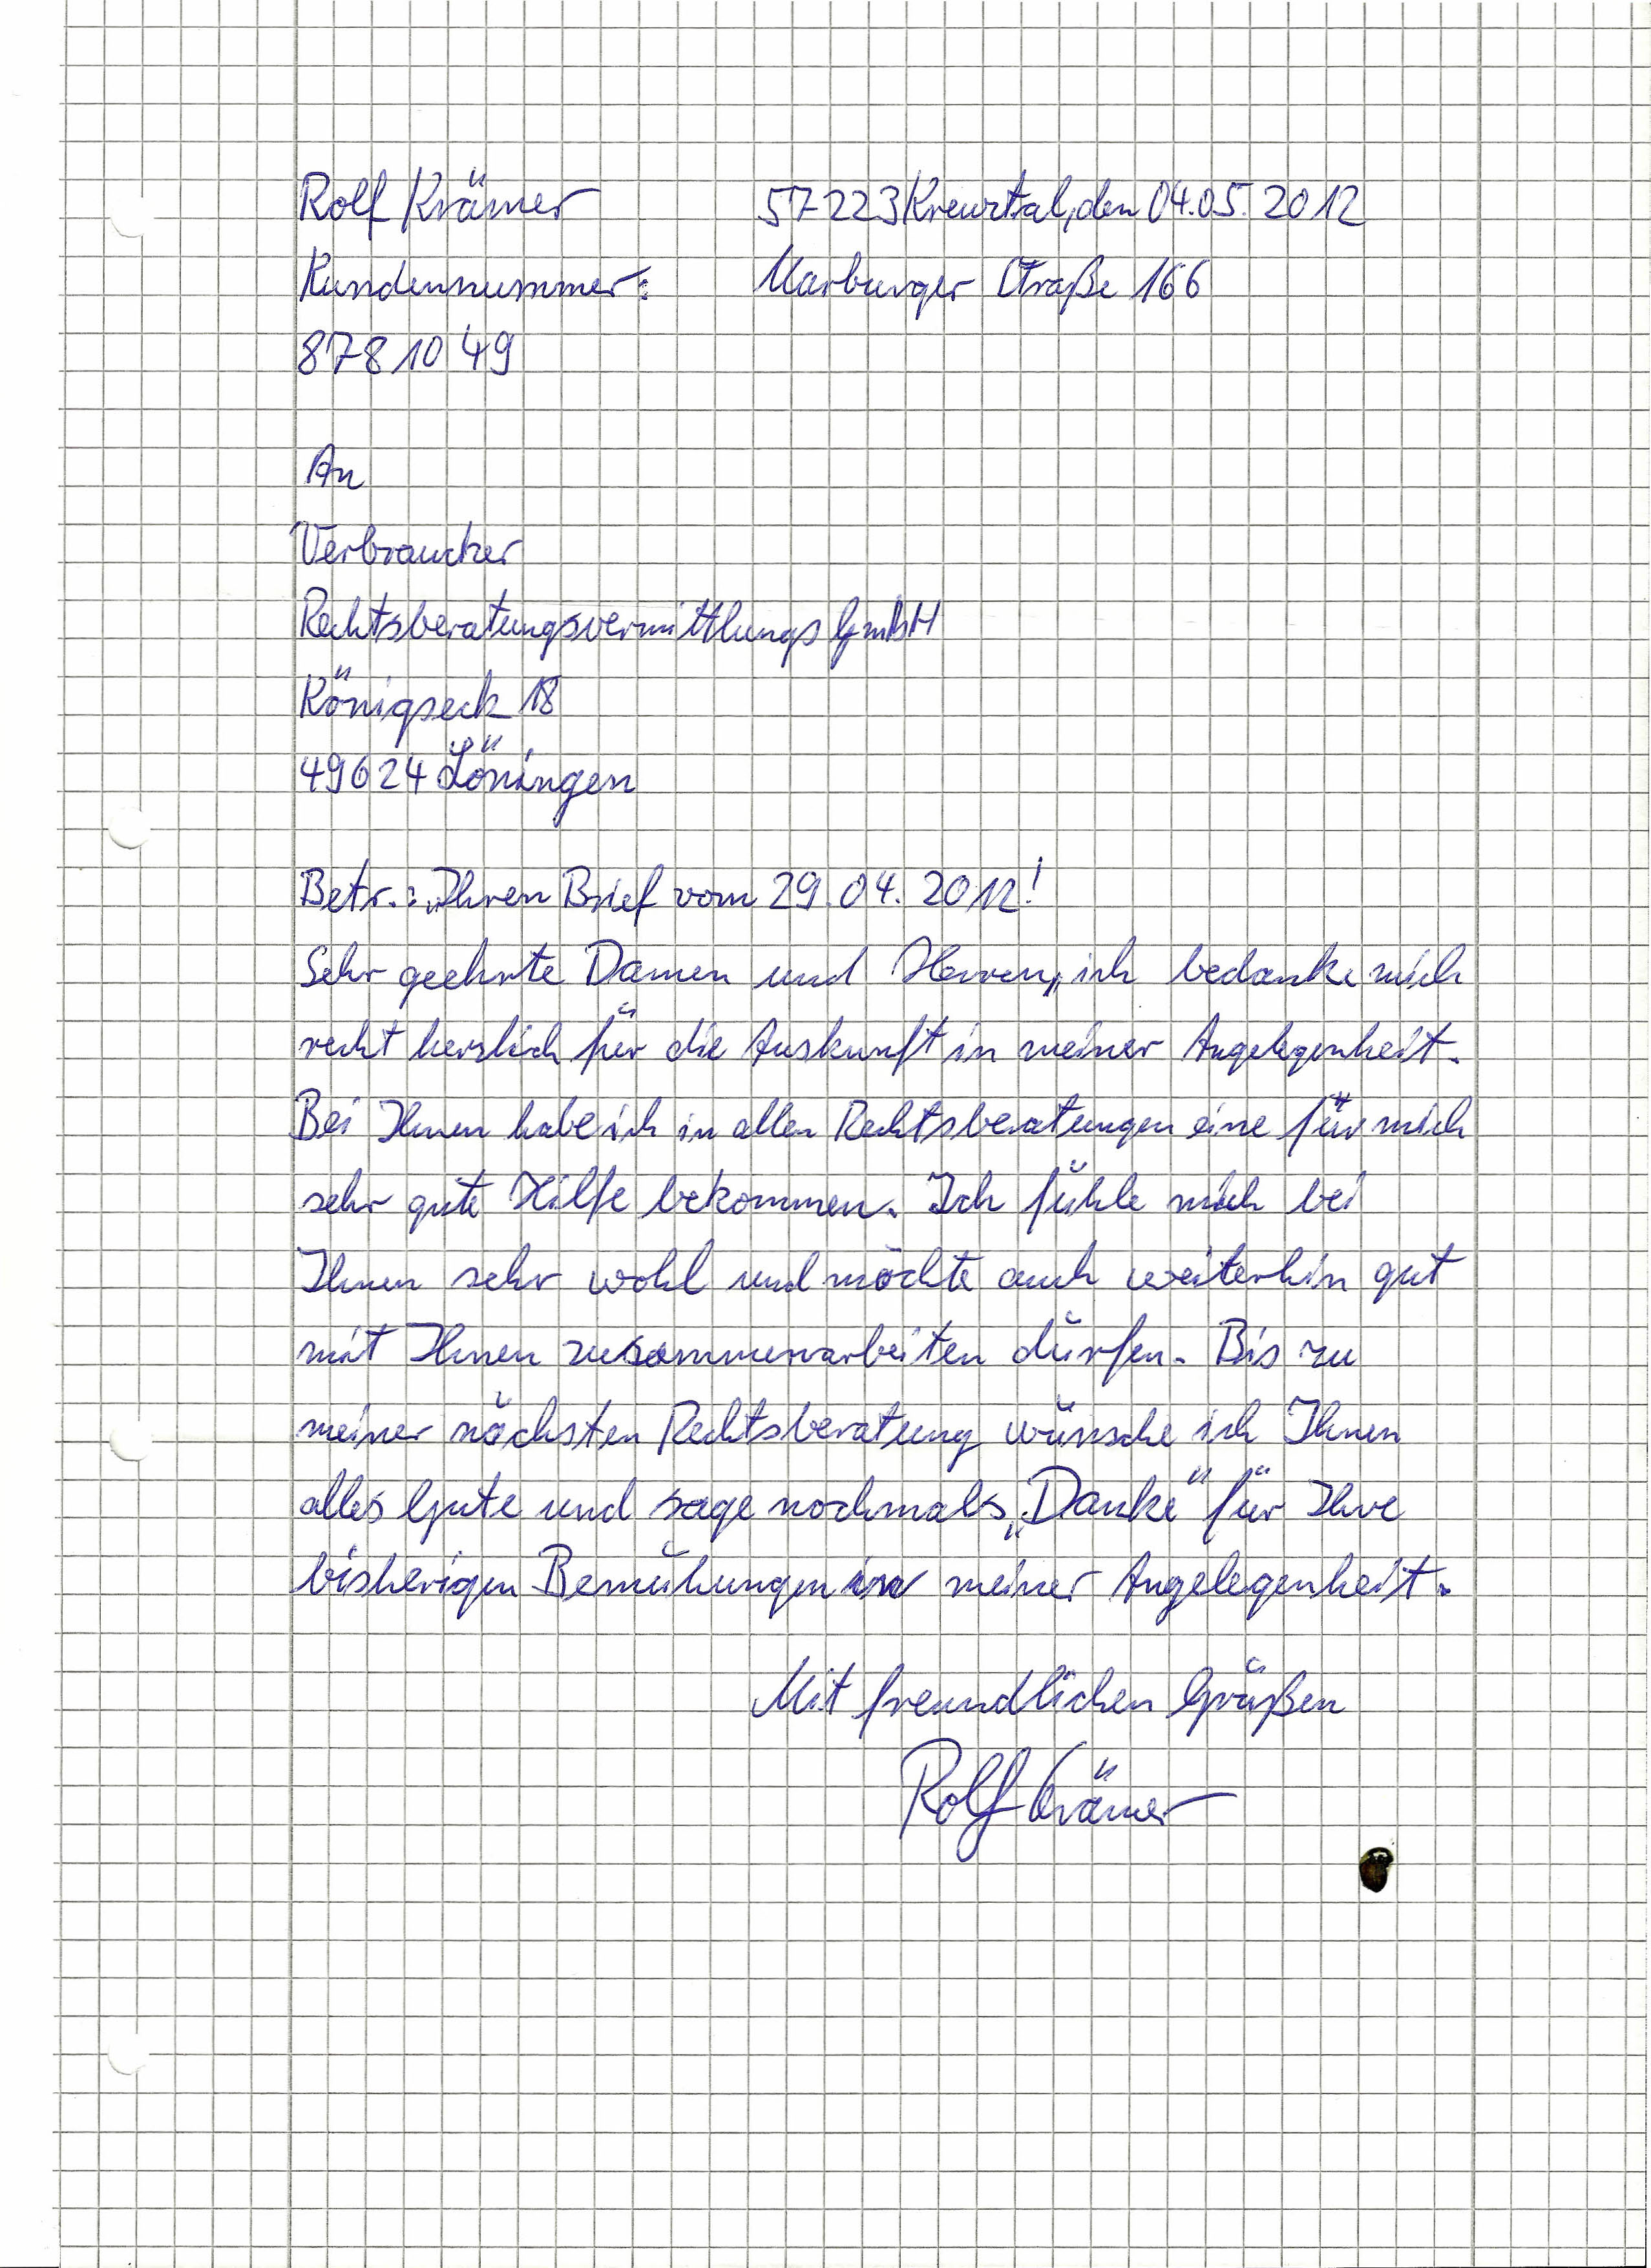 Rolf Krämer 57223 Kreuztal, den 04.05.2012
Kundennummer: Marburger Straße 166
8781049
An
Verbraucher
Rechtsberatungsvermittlungs GmbH
Königseck 18
49624 Löningen
Betr.: „Ihren Brief vom 29.04.2012!
Sehr geehrte Damen und Herren, ich bedanke mich
recht herzlich für die Auskunft in meiner Angelegenheit.
Bei Ihnen habe ich in allen Rechtsberatungen eine für mich
sehr gute Hilfe bekommen. Ich fühle mich bei
Ihnen sehr wohl und möchte auch weiterhin gut
mit Ihnen zusammenarbeiten dürfen. Bis zu
meiner nächsten Rechtsberatung wünsche ich Ihnen
alles Gute und sage nochmals „Danke" für Ihre
bisherigen Bemühungen in meiner Angelegenheit.
Mit freundlichen Grüßen
Rolf Krämer